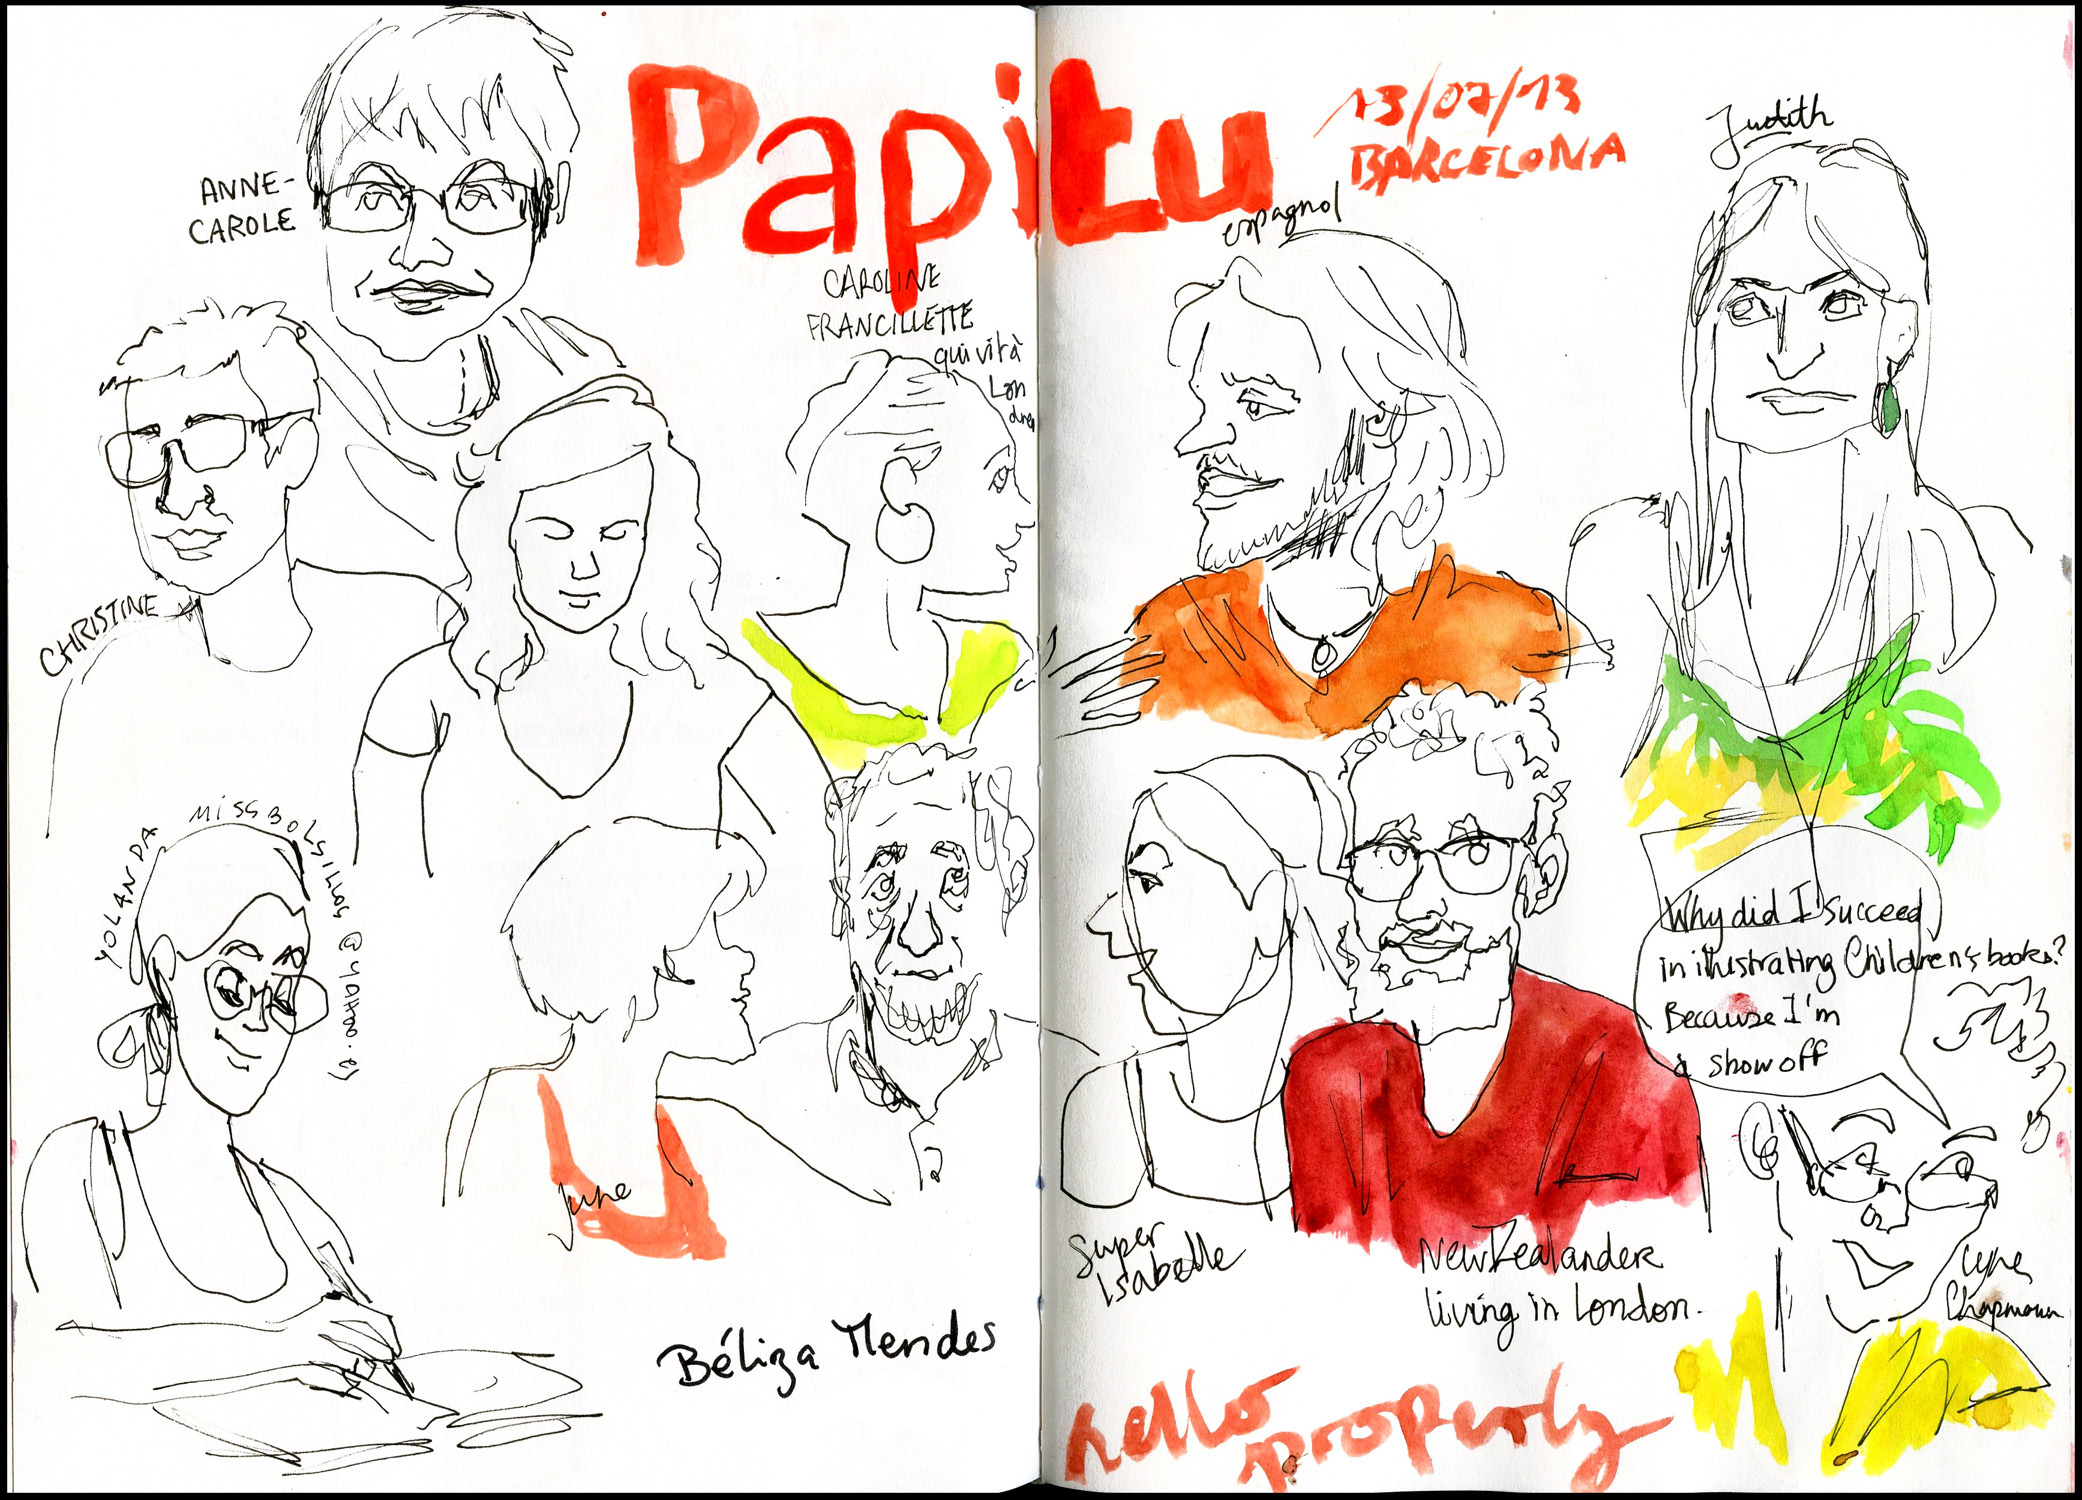 Papitu
13/07/13
BARCELONA
ANNE-
CAROLE
CAROLINE
FRANCILLETTE
qui vit à
Lon
dres
espagnol
Judith
CHRISTINE
YOLANDA
MISSBOLSILLOS@YAHOO.ES
June
Béliza Mendes
Super
Isabelle
New Zealander
living in London.
Why did I succeed
in illustrating Children's books?
Because I'm
a show off
Chapman
hello
properly